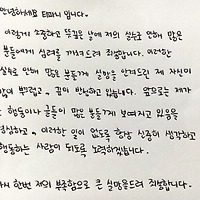 안녕하세요 티파니 입니다.
이렇게 소중하고 뜻깊은 날에 저의 실수로 인해 많은
분들에게 심려를 끼쳐드려 죄송합니다. 이러한
실수로 인해 많은 분들께 실망을 안겨드린 제 자신이
많이 부끄럽고, 깊이 반성하고 있습니다. 앞으로는 제가
하는 행동이나 글들이 많은 분들께 보여지고 있음을
명심하고, 이러한 일이 없도록 항상 신중히 생각하고
행동하는 사람이 되도록 노력하겠습니다.
다시 한번 저의 부족함으로 큰 실망을드려 죄송합니다.